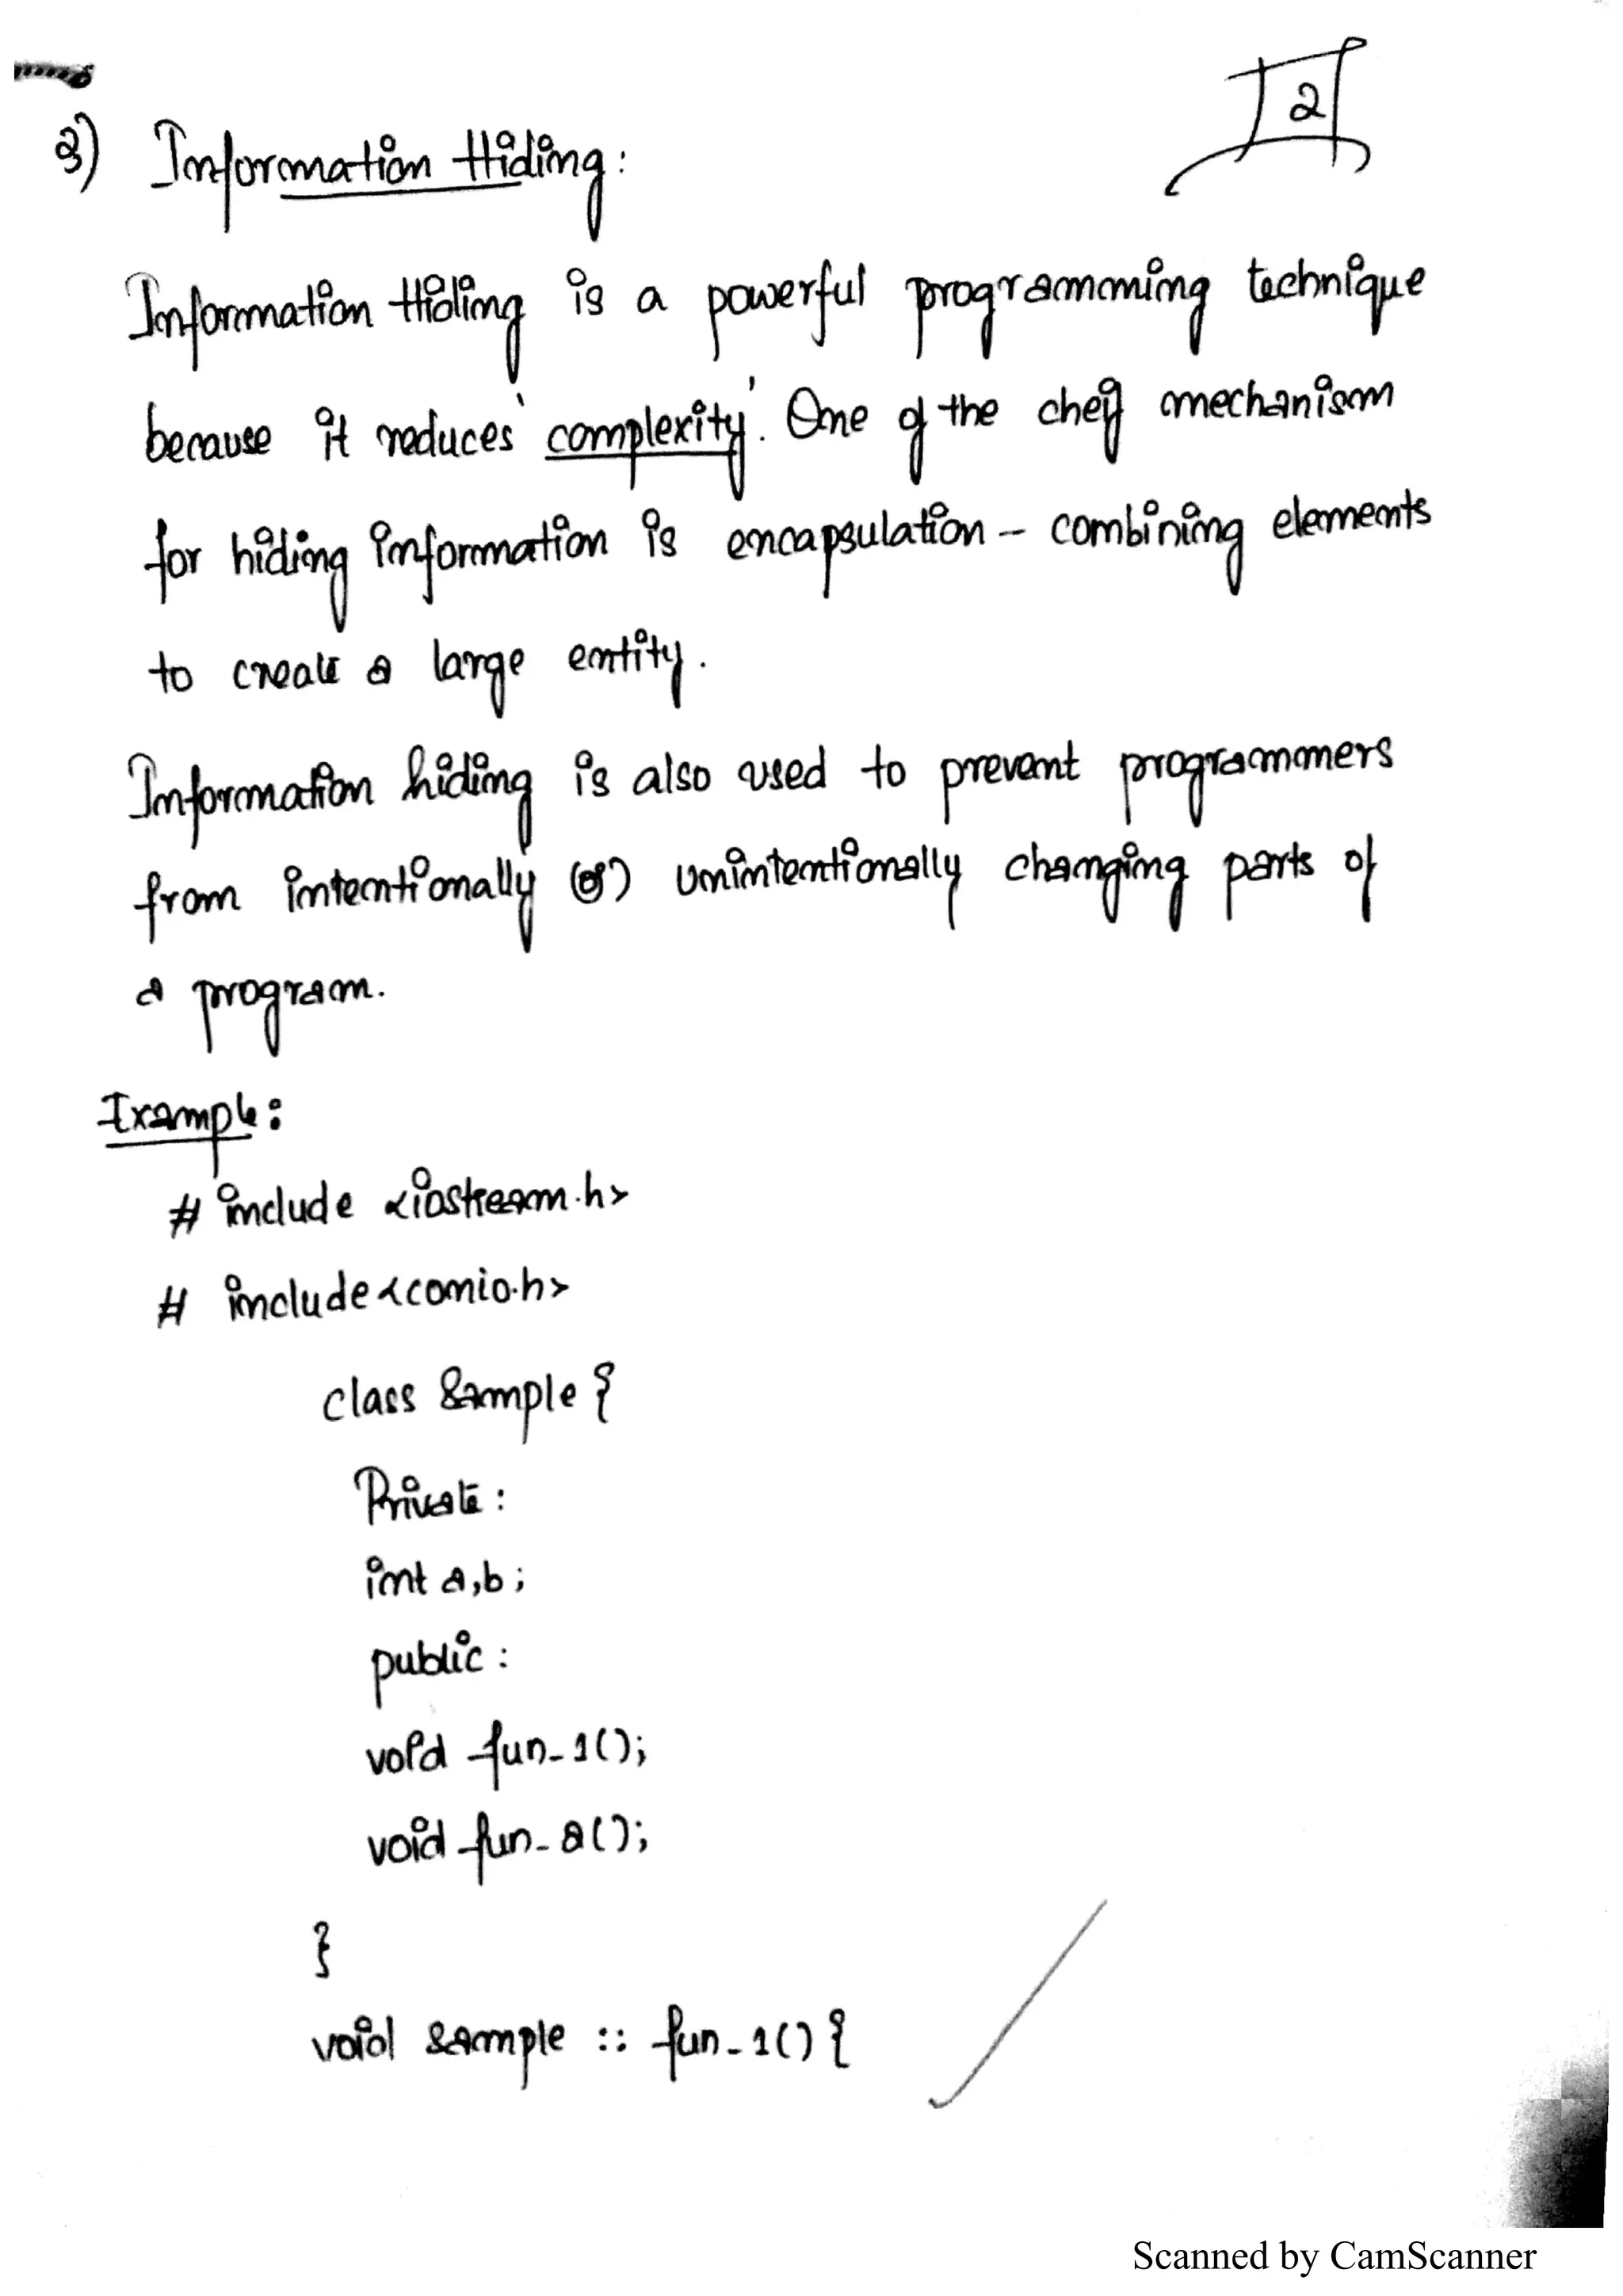 2
3) Information Hiding:
Information Hiding is a powerful programming technique
because it reduces 'complexity'. One of the cheif mechanism
for hiding information is encapsulation - combining elements
to create a large entity.
Information hiding is also used to prevent programmers
from intentionally (or) unintentionally changing parts of
a program.
Example:
# include <iostream.h>
# include<conio.h>
class Sample {
Private :
int a,b;
public :
void fun_1();
void fun_2();
}
void sample :: fun_1() {
Scanned by CamScanner